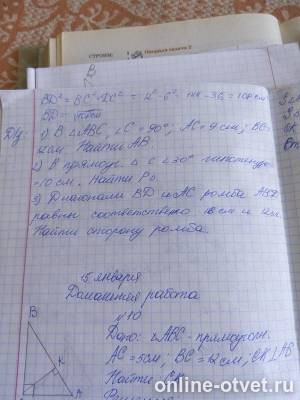 В
BD² = BC² - DC² = 12² - 6² = 144 - 36 = 108 см
BD =
Д/у: 1) В △ABC, ∠C = 90°; AC = 9 см; BC =
12 см. Найти AB
2) В прямоуг. △ с ∠30° гипотенуза
= 10 см. Найти P△
3) Диагонали BD и AC ромба ABCD
равны соответственно и см.
Найти сторону ромба.
15 января
Домашняя работа
№10
B
Дано: △ABC - прямоугольн.
AC = 5 см, BC = 12 см; CK ⊥ AB
K
Найти: CK
A
Решение
online-otvet.ru